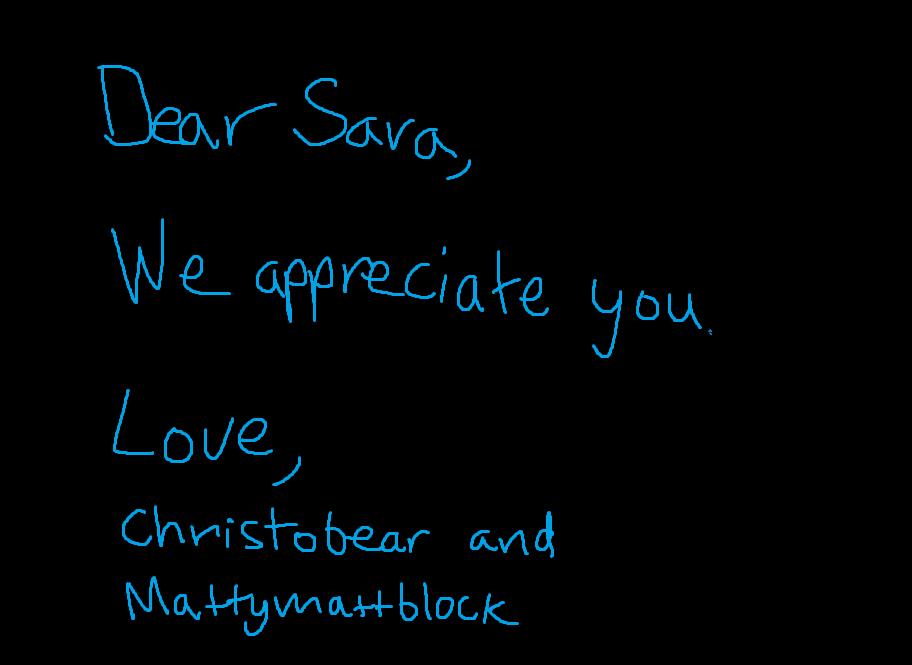 Dear Sara,
We appreciate you.
Love,
Christobear and
Mattymattblock